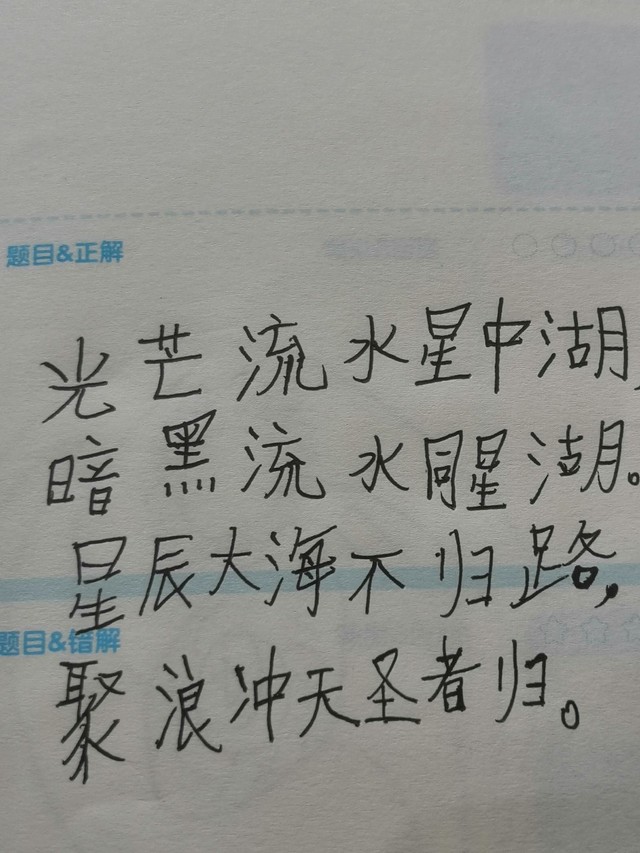 题目&正解
光芒流水星中湖，
暗黑流水同星湖。
星辰大海不归路，
题目&错解
聚浪冲天圣者归。